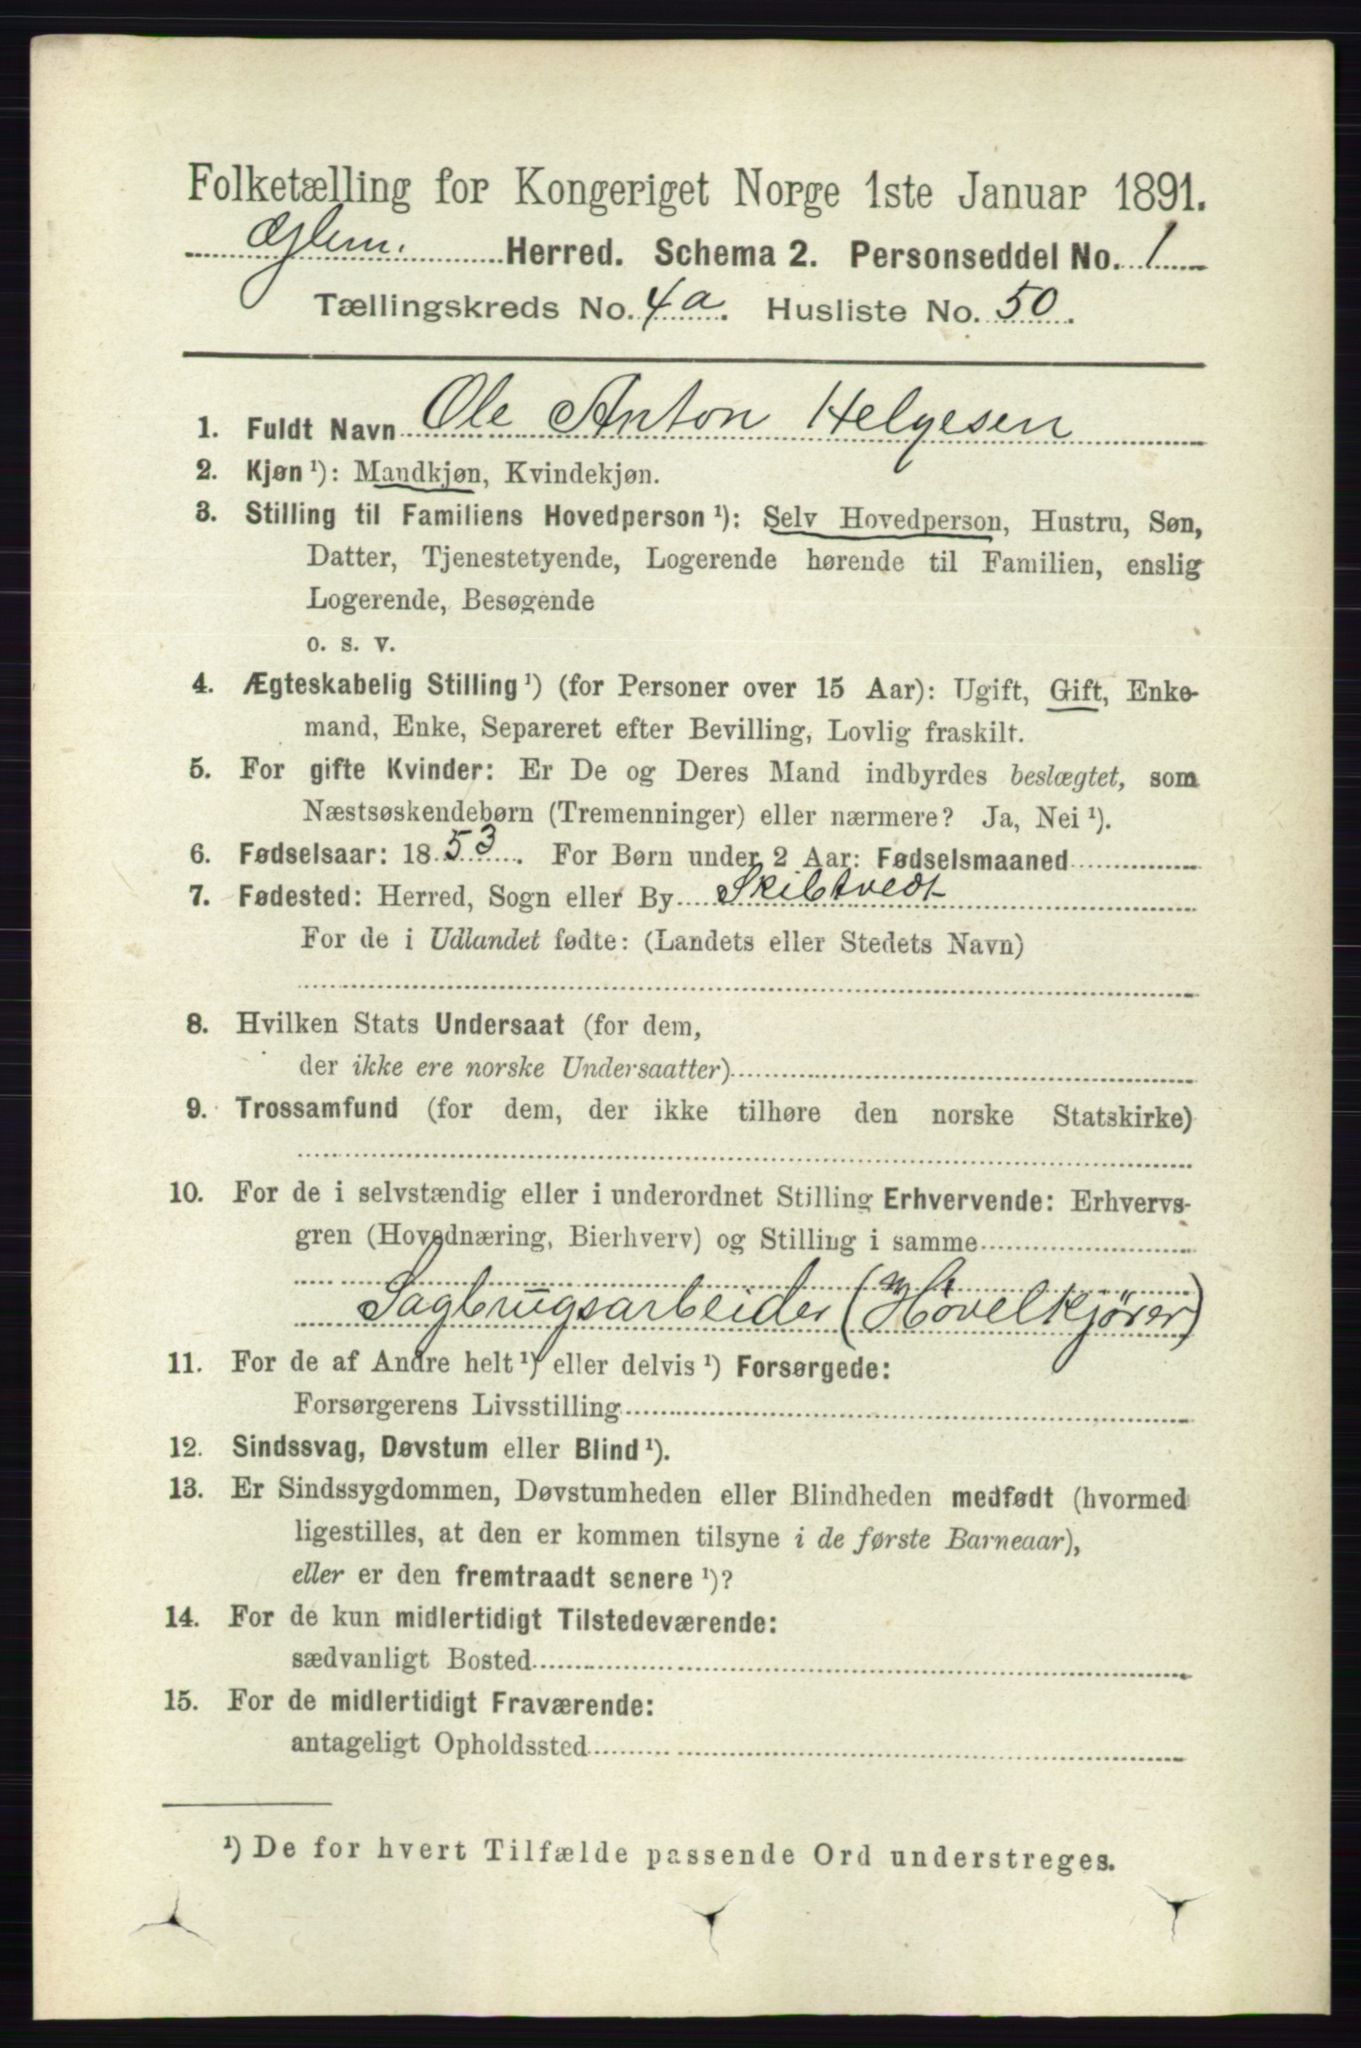 Folketælling for Kongeriget Norge 1ste Januar 1891.
Glem. Herred. Schema 2. Personseddel No. 1
Tællingskreds No. 4a. Husliste No. 50.
1. Fuldt Navn Ole Anton Helgesen
2. Kjøn¹): Mandkjøn, Kvindekjøn.
3. Stilling til Familiens Hovedperson¹): Selv Hovedperson, Hustru, Søn,
Datter, Tjenestetyende, Logerende hørende til Familien, enslig
Logerende, Besøgende
o. s. v.
4. Ægteskabelig Stilling¹) (for Personer over 15 Aar): Ugift, Gift, Enke-
mand, Enke, Separeret efter Bevilling, Lovlig fraskilt.
5. For gifte Kvinder: Er De og Deres Mand indbyrdes beslægtet, som
Næstsøskendebørn (Tremenninger) eller nærmere? Ja, Nei¹).
6. Fødselsaar: 1853. For Børn under 2 Aar: Fødselsmaaned
7. Fødested: Herred, Sogn eller By Skibtvedt
For de i Udlandet fødte: (Landets eller Stedets Navn)
8. Hvilken Stats Undersaat (for dem,
der ikke ere norske Undersaatter)
9. Trossamfund (for dem, der ikke tilhøre den norske Statskirke)
10. For de i selvstændig eller i underordnet Stilling Erhvervende: Erhvervs-
gren (Hovednæring, Bierhverv) og Stilling i samme
Sagbrugsarbeider (Høvelkjører)
11. For de af Andre helt¹) eller delvis¹) Forsørgede:
Forsørgerens Livsstilling
12. Sindssvag, Døvstum eller Blind¹).
13. Er Sindssygdommen, Døvstumheden eller Blindheden medfødt (hvormed
ligestilles, at den er kommen tilsyne i de første Barneaar),
eller er den fremtraadt senere¹)?
14. For de kun midlertidigt Tilstedeværende:
sædvanligt Bosted
15. For de midlertidigt Fraværende:
antageligt Opholdssted
¹) De for hvert Tilfælde passende Ord understreges.